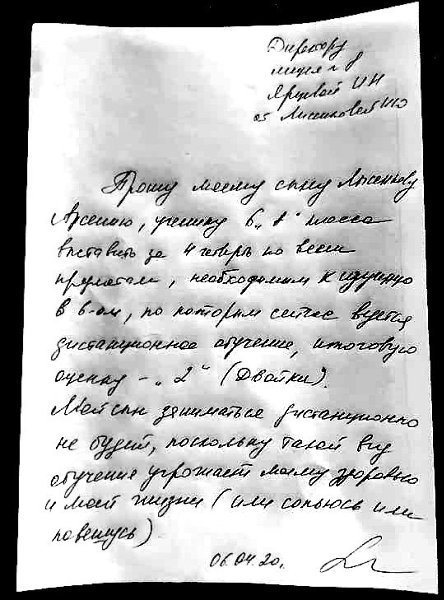 Директору
лицея № 8
Ярцевой И.Н
от Лысенковой Н.Ю
Прошу моему сыну Лысенкову
Арсению, ученику 6 „А" класса
выставить за 4 четверть по всем
предметам, необходимым к изучению
в 6-ом, по которым сейчас ведется
дистанционное обучение, итоговую
оценку - „2" (Двойки).
Мой сын заниматься дистанционно
не будет, поскольку такой вид
обучения угрожает моему здоровью
и моей жизни (или сопьюсь или
повешусь).
06.04.20.